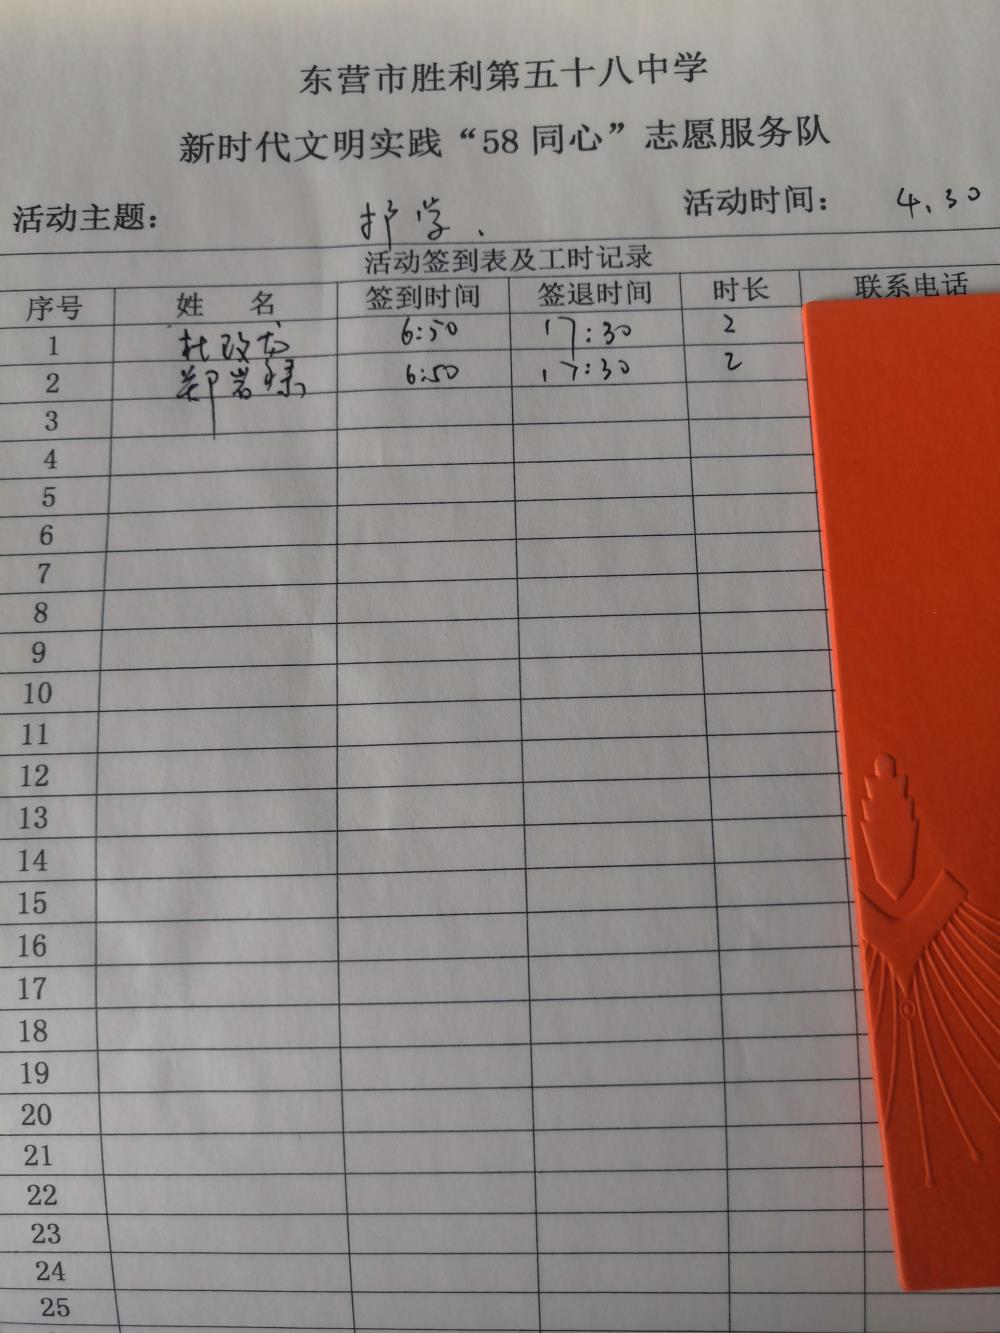 东营市胜利第五十八中学
新时代文明实践“58 同心”志愿服务队
活动主题: 护学. 活动时间: 4.30
活动签到表及工时记录
序号 姓 名 签到时间 签退时间 时长 联系电话
1 杜政龙 6:50 17:30 2
2 郑岩 6:50 17:30 2
3
4
5
6
7
8
9
10
11
12
13
14
15
16
17
18
19
20
21
22
23
24
25